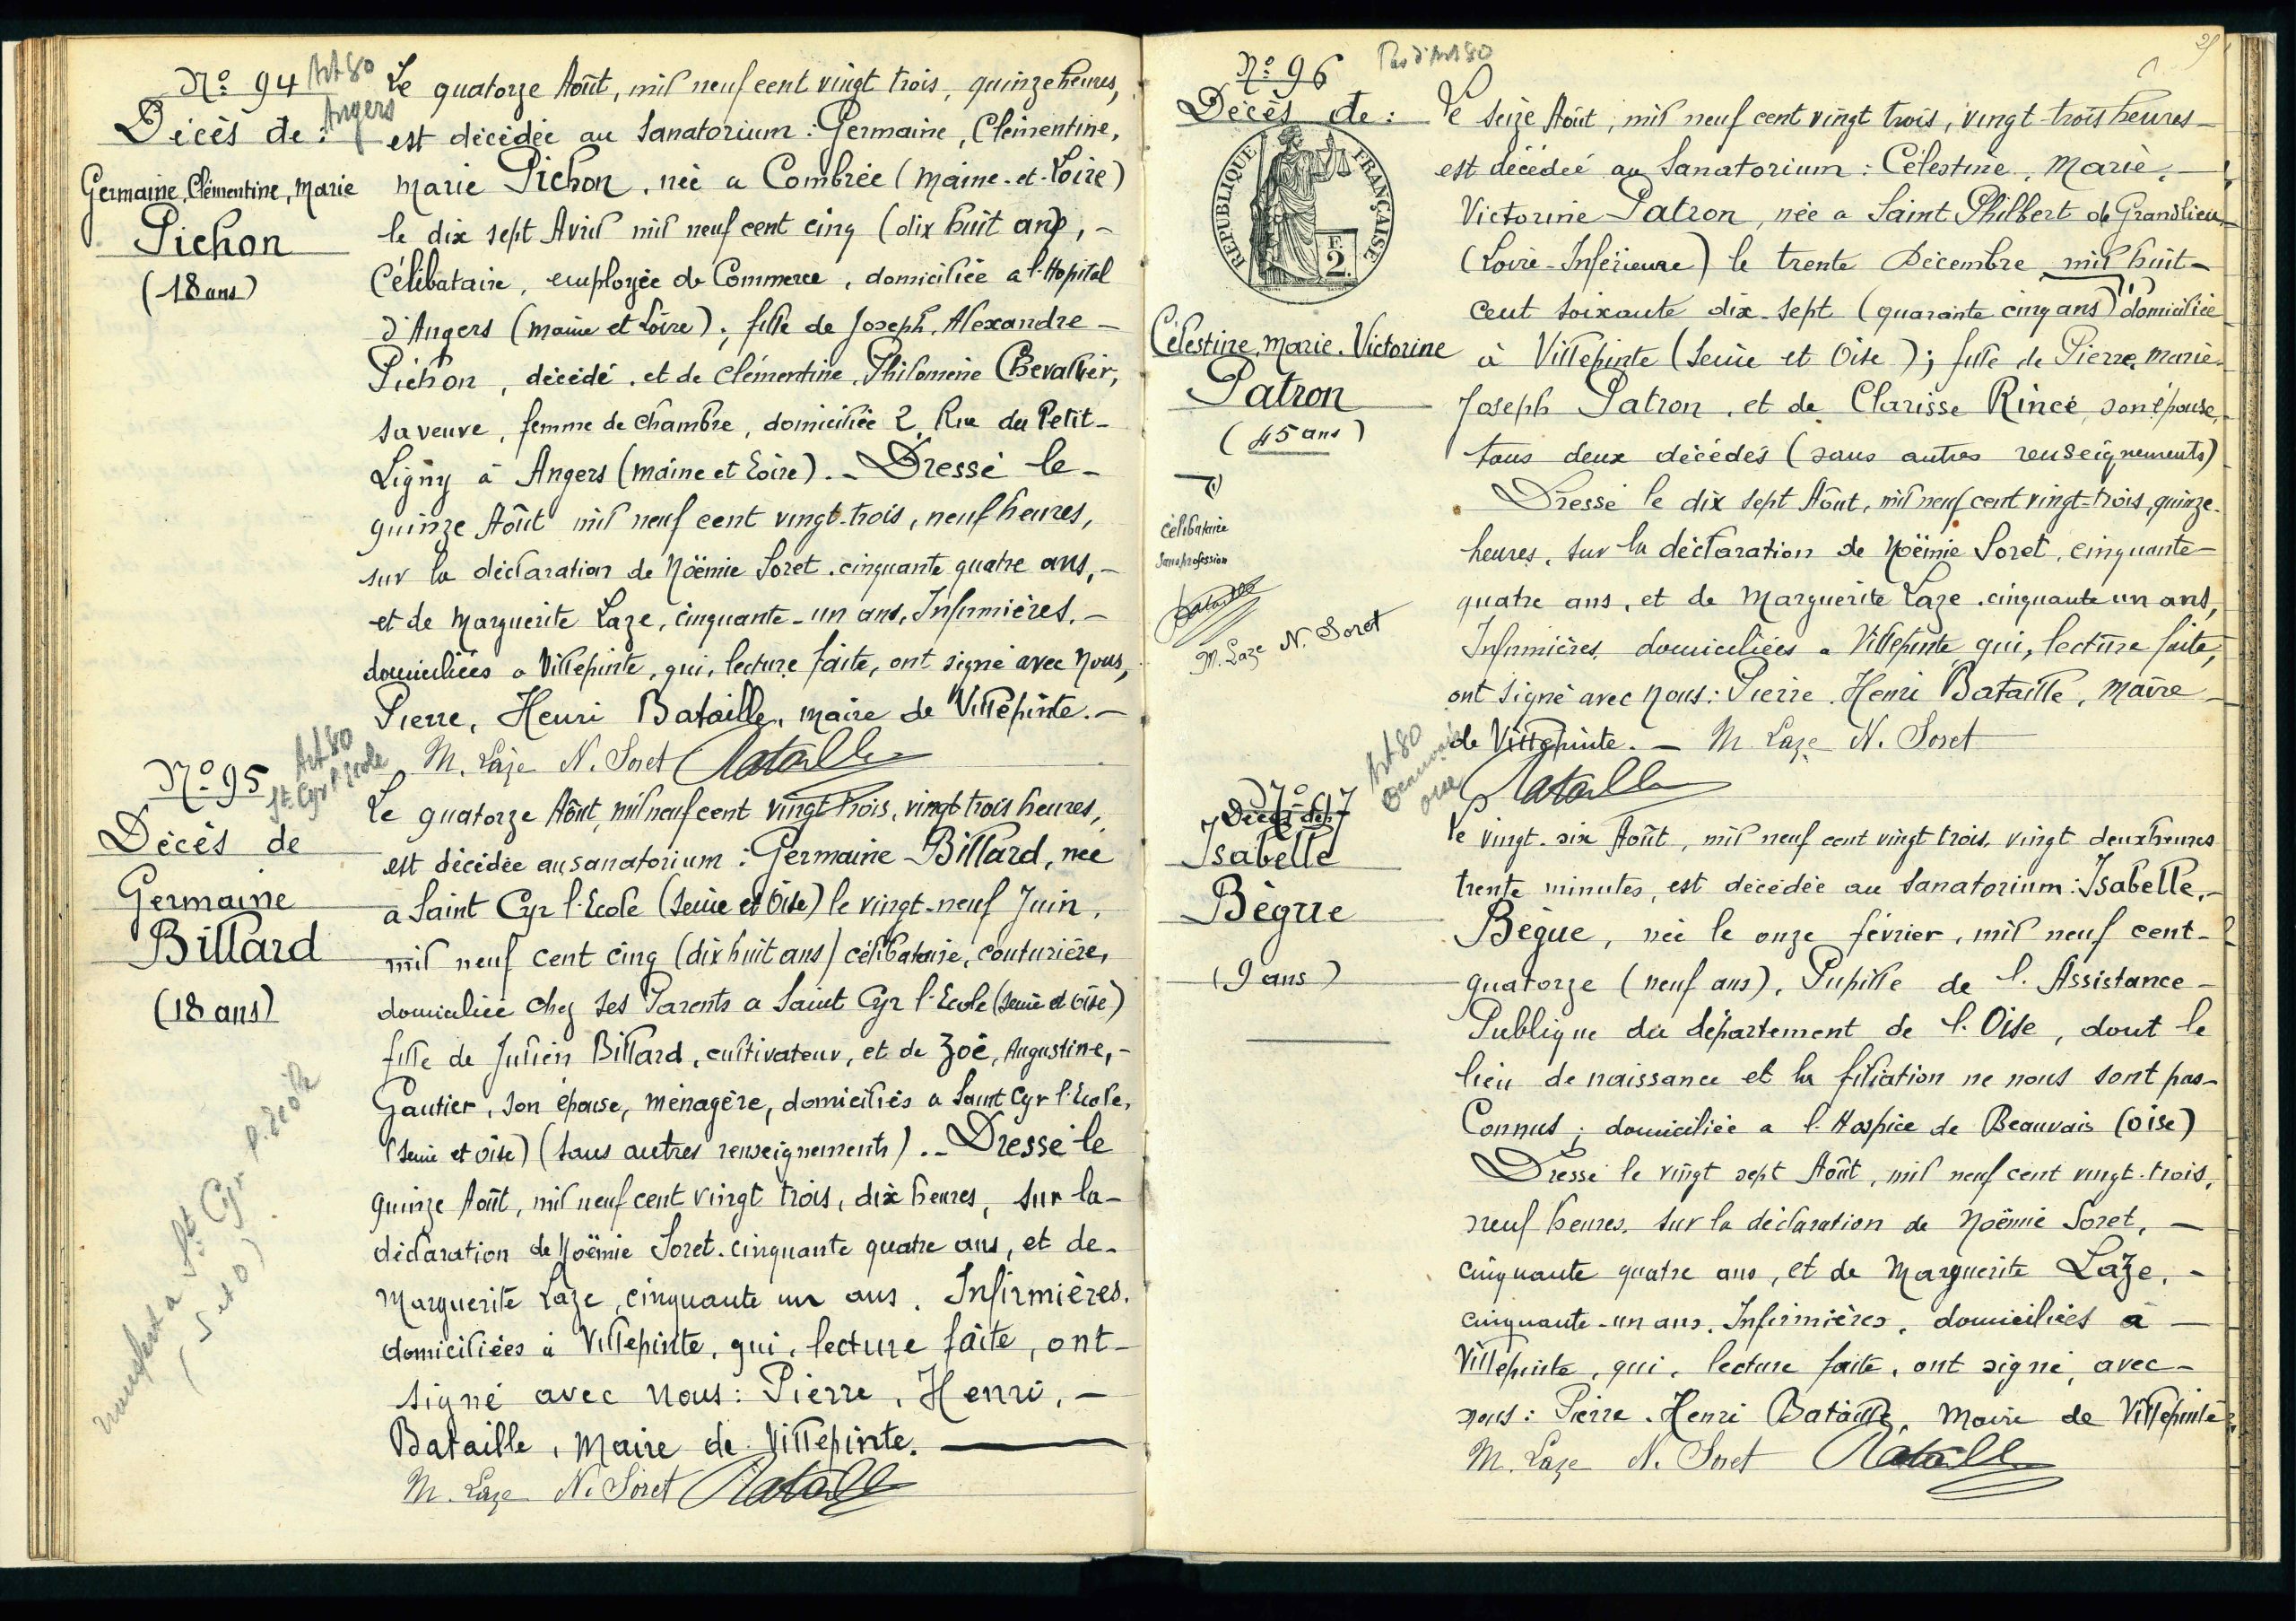 Nº 94
Art 80
Angers
Décès de :
Germaine, Clémentine, Marie
Pichon
(18 ans)
Le quatorze Août, mil neuf cent vingt trois, quinze heures,
est décédée au Sanatorium : Germaine, Clémentine,
Marie Pichon, née a Combrée (Maine-et-Loire)
le dix sept Avril mil neuf cent cinq (dix huit ans), -
Célibataire, employée de Commerce, domiciliée a l'Hopital
d'Angers (Maine et Loire) ; fille de Joseph, Alexandre -
Pichon, décédé, et de Clémentine, Philomène Chevallier,
sa veuve, femme de chambre, domiciliée 2, Rue du Petit-
Ligny à Angers (Maine et Loire). - Dressé le -
quinze Août mil neuf cent vingt-trois, neuf heures,
sur la déclaration de Noëmie Soret, cinquante quatre ans, -
et de Marguerite Laze, cinquante-un ans, Infirmières, -
domiciliées a Villepinte, qui, lecture faite, ont signé avec Nous,
Pierre, Henri Bataille, Maire de Villepinte. -
M. Laze N. Soret Bataille
Nº 95
Art 80
St Cyr l'Ecole
Décès de
Germaine
Billard
(18 ans)
St Cyr l'Ecole
(S et O)
Le quatorze Août, mil neuf cent vingt trois, vingt trois heures,
est décédée au sanatorium : Germaine Billard, née
a Saint Cyr l'Ecole (Seine et Oise) le vingt-neuf Juin,
mil neuf cent cinq (dix huit ans) célibataire, couturière,
domiciliée chez ses Parents a Saint Cyr l'Ecole (Seine et Oise)
fille de Julien Billard, cultivateur, et de Zoé, Augustine, -
Gautier, son épouse, ménagère, domiciliés a Saint Cyr l'Ecole,
(Seine et Oise) (sans autres renseignements). - Dressé le
quinze Août, mil neuf cent vingt trois, dix heures, sur la -
déclaration de Noëmie Soret, cinquante quatre ans, et de -
Marguerite Laze, cinquante un ans, Infirmières,
domiciliées à Villepinte, qui, lecture faite, ont -
signé avec Nous : Pierre, Henri, -
Bataille, Maire de Villepinte.
M. Laze N. Soret Bataille
Nº 96
Pas d'Art 80
Décès de :
REPUBLIQUE FRANÇAISE
F. 2.
Célestine, Marie, Victorine
Patron
(45 ans)
célibataire
sans profession
Bataille
M. Laze N. Soret
Le seize Août, mil neuf cent vingt trois, vingt-trois heures -
est décédée au Sanatorium : Célestine, Marie, -
Victorine Patron, née a Saint Philbert de Grandlieu
(Loire-Inférieure) le trente Décembre mil huit -
cent soixante dix-sept (quarante cinq ans) domiciliée
à Villepinte (Seine et Oise) ; fille de Pierre, Marie-
Joseph Patron, et de Clarisse Rincé, son épouse,
tous deux décédés (sans autres renseignements)
Dressé le dix sept Août, mil neuf cent vingt-trois, quinze-
heures, sur la déclaration de Noëmie Soret, cinquante -
quatre ans, et de Marguerite Laze, cinquante un ans,
Infirmières, domiciliées a Villepinte qui, lecture faite,
ont signé avec Nous : Pierre, Henri Bataille, Maire -
de Villepinte. - M. Laze N. Soret
Bataille
Nº 97
Art 80
Beauvais
Oise
Décès de
Isabelle
Bègue
(9 ans)
Le vingt-six Août, mil neuf cent vingt trois, vingt deux heures
trente minutes, est décédée au Sanatorium : Isabelle, -
Bègue, née le onze février, mil neuf cent -
quatorze (neuf ans), Pupille de l'Assistance -
Publique du département de l'Oise, dont le
lieu de naissance et la filiation ne nous sont pas -
Connus ; domiciliée a l'Hospice de Beauvais (Oise)
Dressé le vingt sept Août, mil neuf cent vingt-trois,
neuf heures, sur la déclaration de Noëmie Soret, -
cinquante quatre ans, et de Marguerite Laze, -
cinquante-un ans, Infirmières, domiciliées à -
Villepinte, qui, lecture faite, ont signé, avec -
nous : Pierre, Henri Bataille, Maire de Villepinte.
M. Laze N. Soret Bataille